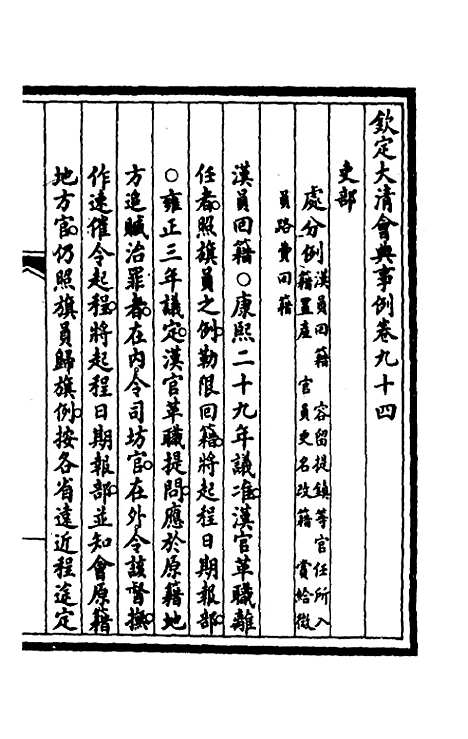 欽定大清會典事例卷九十四
吏部
處分例漢員回籍　容留提鎮等官任所入
籍置產　官員更名改籍　賞給微
員路費回籍
漢員回籍○康熙二十九年議准漢官革職離
任者照旗員之例勒限回籍將起程日期報部
○雍正三年議定漢官革職提問應於原籍地
方追贓治罪者在內令司坊官在外令該督撫
作速催令起程將起程日期報部並知會原籍
地方官仍照旗員歸旗例按各省遠近程途定